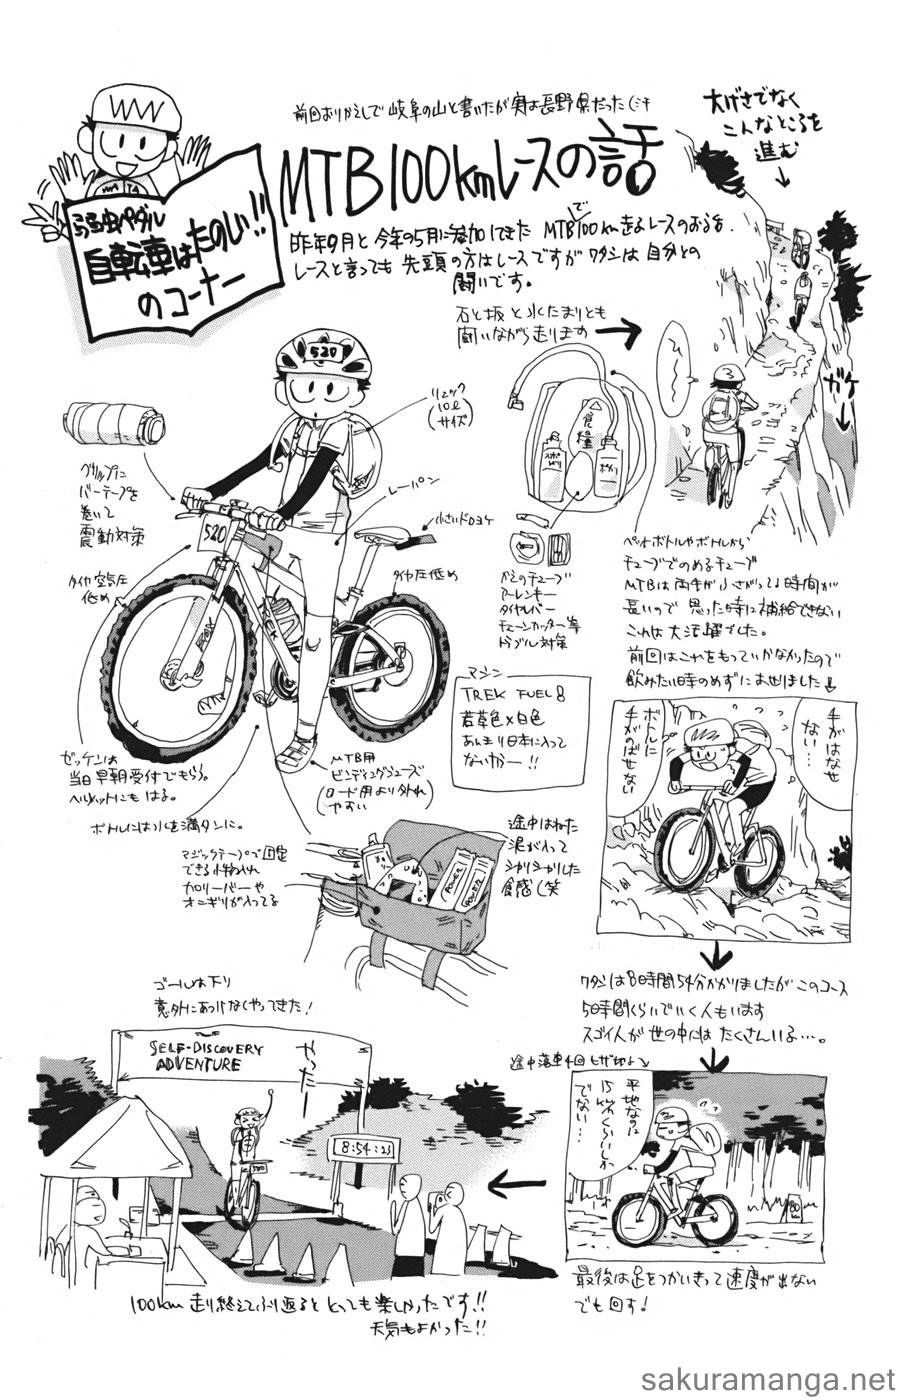 前回おりかえしで岐阜の山と書いたが実は長野県だった(汗
MTB100kmレースの話
弱虫ペダル
自転車はたのしい!!
のコーナー
昨年9月と今年の5月に参加してきた MTBで100km走るレースのおはなし.
レースと言っても先頭の方はレースですがワタシは自分との
闘いです。
大げさでなく
こんなところを
進む
石と坂と水たまりとも
闘いながら走ります
ひ〜〜
ガケ
リュック
10ℓ
サイズ
520
グリップに
バーテープを
巻いて
震動対策
レーパン
小さいドロヨケ
520
タイヤ空気圧
低め
タイヤ圧低め
食糧
かえのチューブ
アーレンキー
タイヤレバー
チェーンカッター等
トラブル対策
ペットボトルやボトルから
チューブでのめるチューブ
MTBは両手がふさがってる時間が
長いので思った時に補給できない
これは大活躍でした。
前回はこれをもっていかなかったので
飲みたい時のめずにあせりました
マシン
TREK FUEL 8
若草色×白色
あんまり日本に入って
ないかー!!
ゼッケンは
当日早朝受付でもらう。
ヘルメットにもはる。
MTB用
ビンディングシューズ
(ロード用より外れ
やすい)
ボトルには水を満タンに。
マジックテープで固定
できる小物入れ
カロリーバーや
オニギリが入ってる
途中はねた
泥が入って
シャリシャリした
食感(笑
手がはなせ
ない…
ボトルに
手がのばせない
ワタシは8時間54分かかりましたがこのコース
5時間くらいでいく人もいます
スゴイ人が世の中にはたくさんいる…。
途中落車4回 ヒザ切る
平地なのに
15km/hくらいしか
でない…
最後は足をつかいきって速度が出ない
でも回す!
ゴールは下り
意外にあっけなくやってきた!
SELF-DISCOVERY
ADVENTURE
やったー
8:54:23
520
100km走り終えてふり返るととっても楽しかったです!!
天気もよかった!!
sakuramanga.net